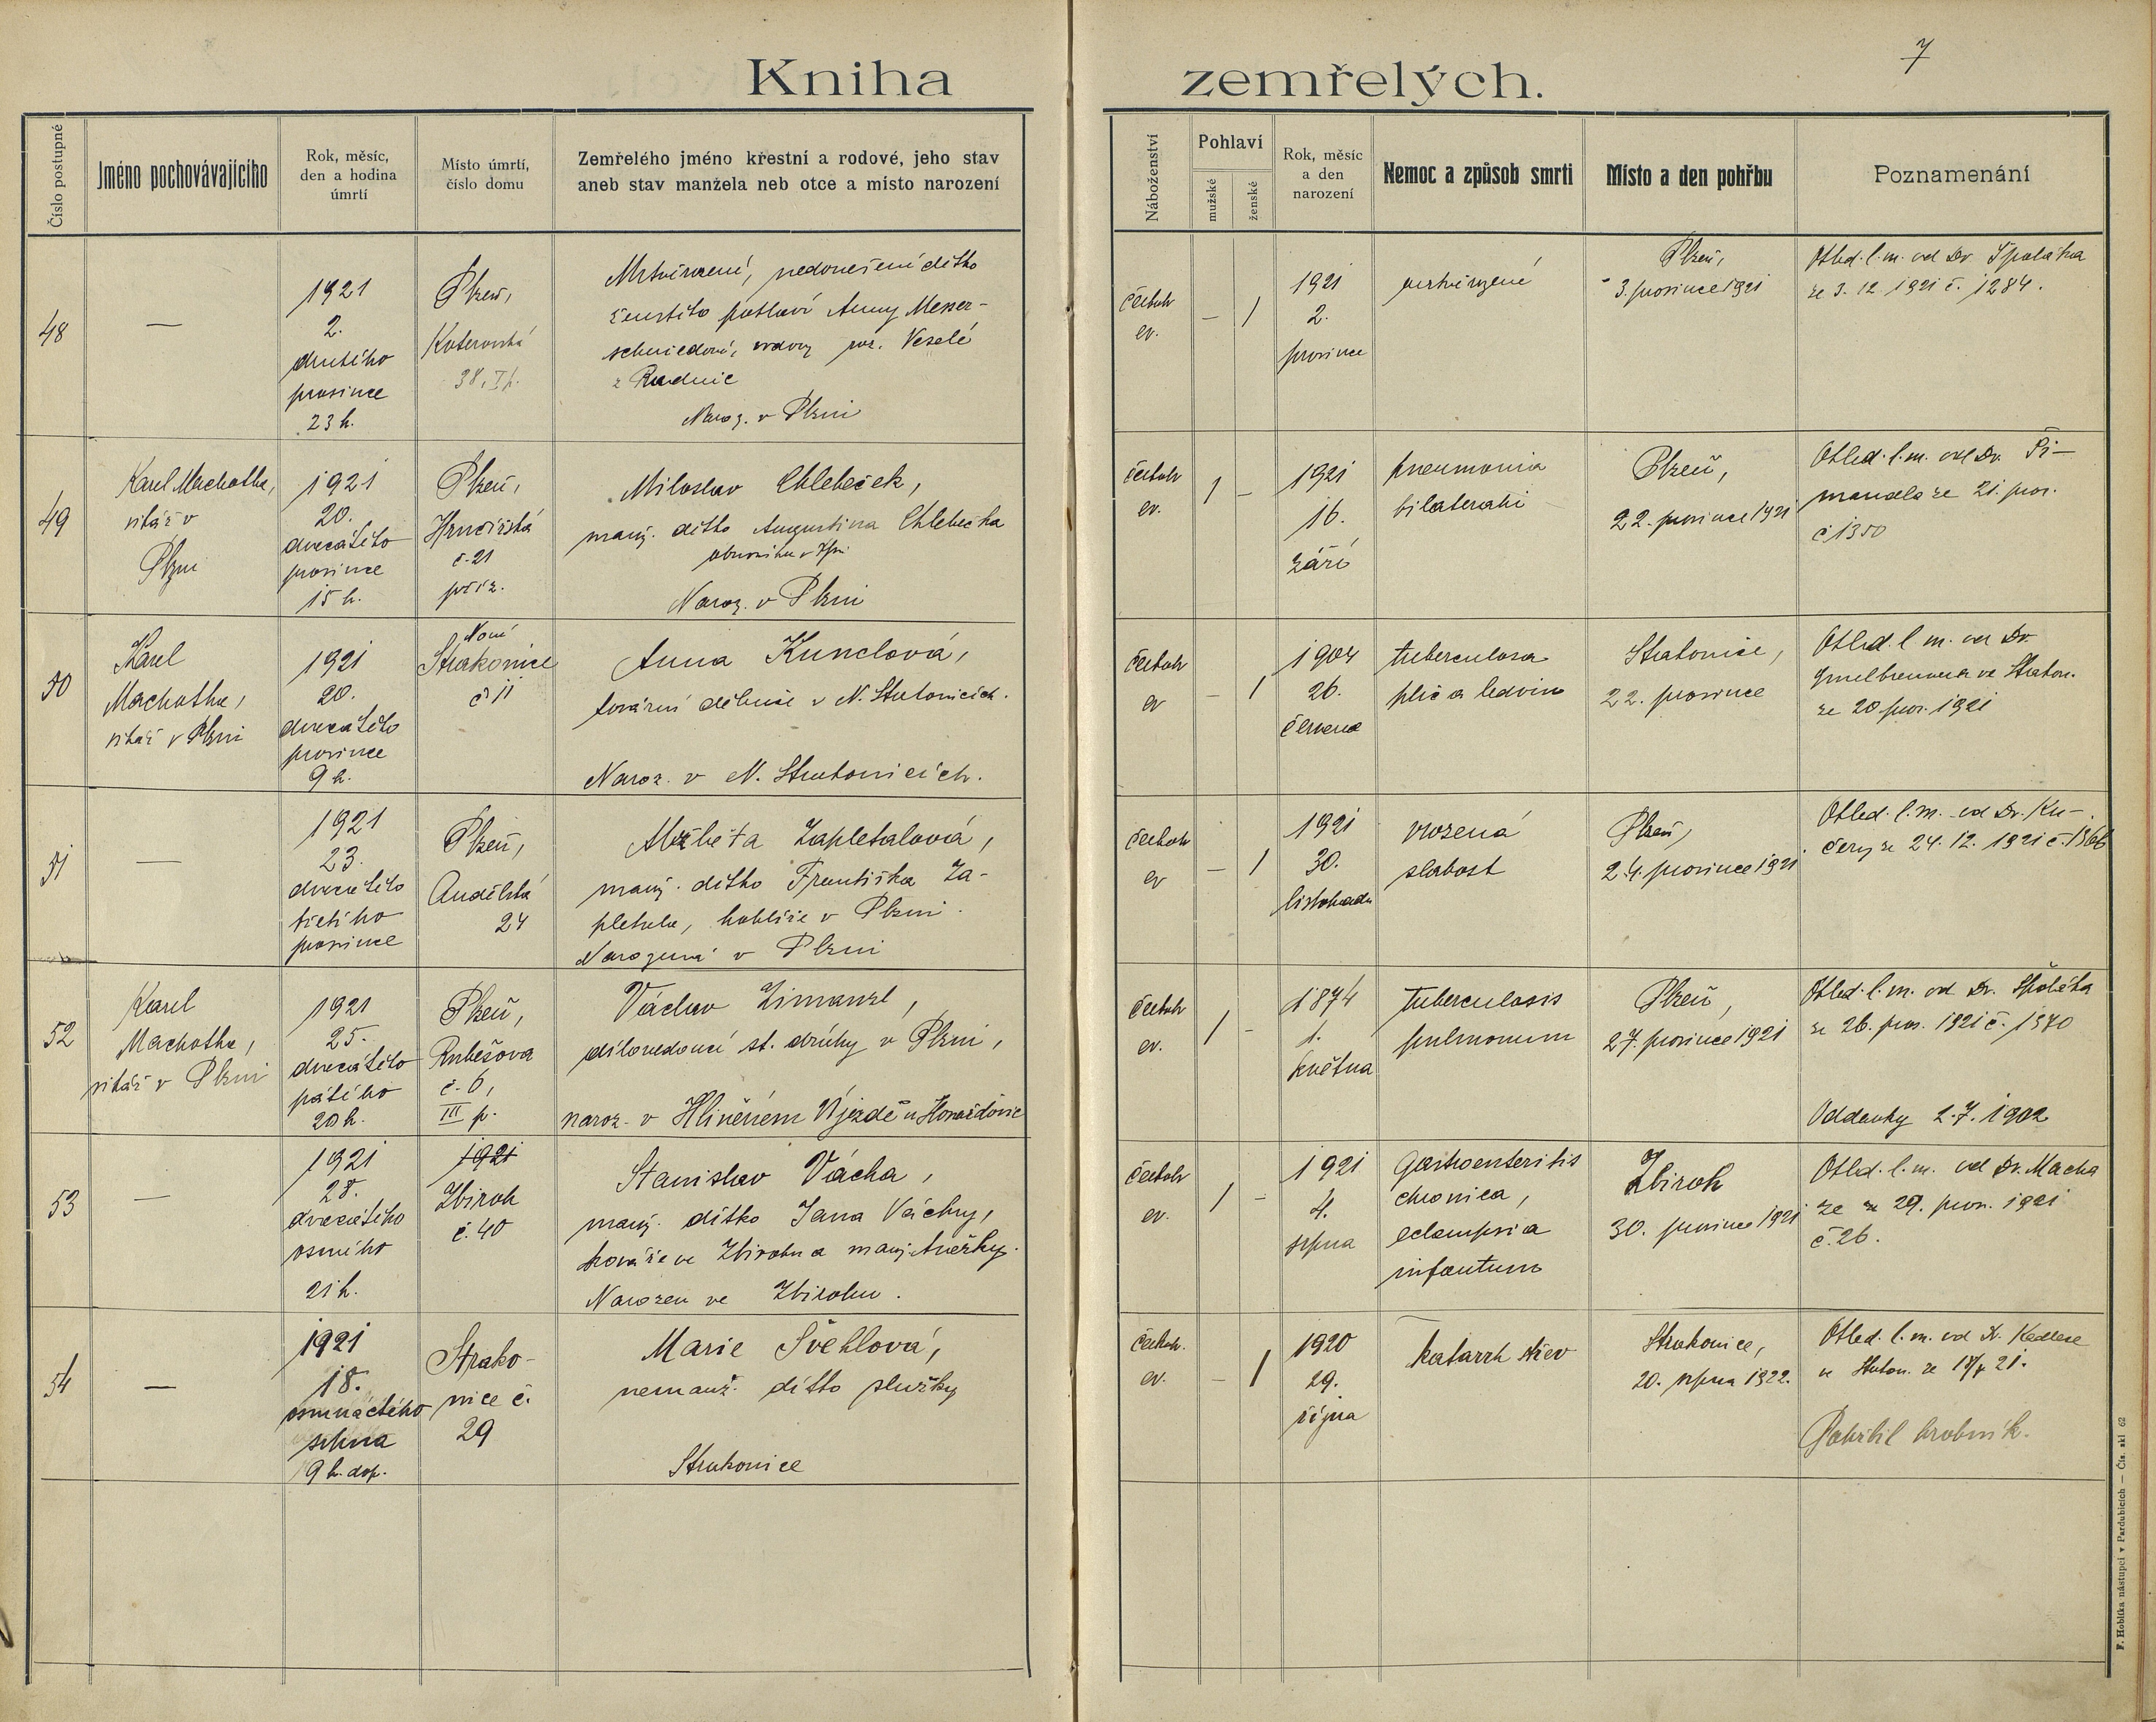 7
Kniha zemřelých.
Číslo postupné
Jméno pochovávajícího
Rok, měsíc,
den a hodina
úmrtí
Místo úmrtí,
číslo domu
Zemřelého jméno křestní a rodové, jeho stav
aneb stav manžela neb otce a místo narození
Náboženství
Pohlaví
mužské
ženské
Rok, měsíc
a den
narození
Nemoc a způsob smrti
Místo a den pohřbu
Poznamenání
48
—
1921
2.
druhého
prosince
23 h.
Plzeň,
Koterovská
38, I p.
Mrtvěrozené, nedonešené dítko
ženského pohlaví Anny Messer-
schmiedové, vdovy roz. Veselé
z Radnic
Naroz. v Plzni
českobr
ev.
–
1
1921
2.
prosince
mrtvěrozené
Plzeň,
3. prosince 1921
Ohled. l. m. od Dr. Špalátka
ze 3. 12. 1921 č. 1284.
49
Karel Machotka,
vikář v
Plzni
1921
20.
dvacátého
prosince
15 h.
Plzeň,
Hrnčířská
č. 21
příz.
Miloslav Chlebeček,
manž. dítko Augustina Chlebečka
obuvníka v Plzni
Naroz. v Plzni
českobr
ev.
1
–
1921
16.
září
pneumonia
bilateralis
Plzeň,
22. prosince 1921
Ohled. l. m. od Dr. Pi-
mandla ze 21. pros.
č 1350
50
Karel
Machotka,
vikář v Plzni
1921
20.
dvacátého
prosince
9 h.
Nové
Strakonice
č 11
Anna Kunclová,
tovární dělnice v N. Strakonicích.
Naroz. v N. Strakonicích.
českobr
ev
–
1
1904
26.
června
tuberculosa
plic a ledvin
Strakonice,
22. prosince
Ohled. l. m. od Dr
ve Strakon.
ze 20 pros. 1921
51
—
1921
23.
dvacátého
třetího
prosince
Plzeň,
Andělská
24
Alžběta Zapletalová,
manž. dítko Františka Za-
pletala, hoblíře v Plzni.
Narozena v Plzni
českobr
ev
–
1
1921
30.
listopadu
vrozená
slabost
Plzeň,
24. prosince 1921
Ohled. l. m. od Dr. Ku-
čery ze 24. 12. 1921 č. 1366
52
Karel
Machotka,
vikář v Plzni
1921
25.
dvacátého
pátého
20 h.
Plzeň,
Rubešova
č. 6,
III p.
Václav Zimanzl,
dílovedoucí st. dráhy v Plzni,
naroz. v Hliněném Újezdě u Horažďovic
českobr
ev.
1
–
1874
1.
května
tuberculosis
pulmonum
Plzeň,
27. prosince 1921
Ohled. l. m. od Dr. Špalátka
ze 26. pros. 1921 č. 1370
Oddavky 2. 7. 1902
53
—
1921
28.
dvacátého
osmého
21 h.
1921
Zbiroh
č. 40
Stanislav Vácha,
manž. dítko Jana Váchy,
kováře ve Zbirohu a manž. Anežky.
Narozen ve Zbirohu.
českobr
ev.
1
–
1921
4.
srpna
Gastroenteritis
chronica,
eclampsia
infantum
Zbiroh
30. prosince 1921
Ohled. l. m. od Dr. Macha
ze ze 29. pros. 1921
č. 26.
54
—
1921
18.
osmnáctého
srpna
9 h. dop.
Strako-
nice č.
29
Marie Švehlová,
nemanž. dítko služky
Strakonice
českobr.
ev.
–
1
1920
29.
října
katarrh střev
Strakonice,
20. srpna 1922.
Ohled. l. m. od Dr. Kedlese
ve Strakon. ze 18/8 21.
Pohřbil hrobník.
F. Hoblíka nástupci v Pardubicích — Čís. skl 62